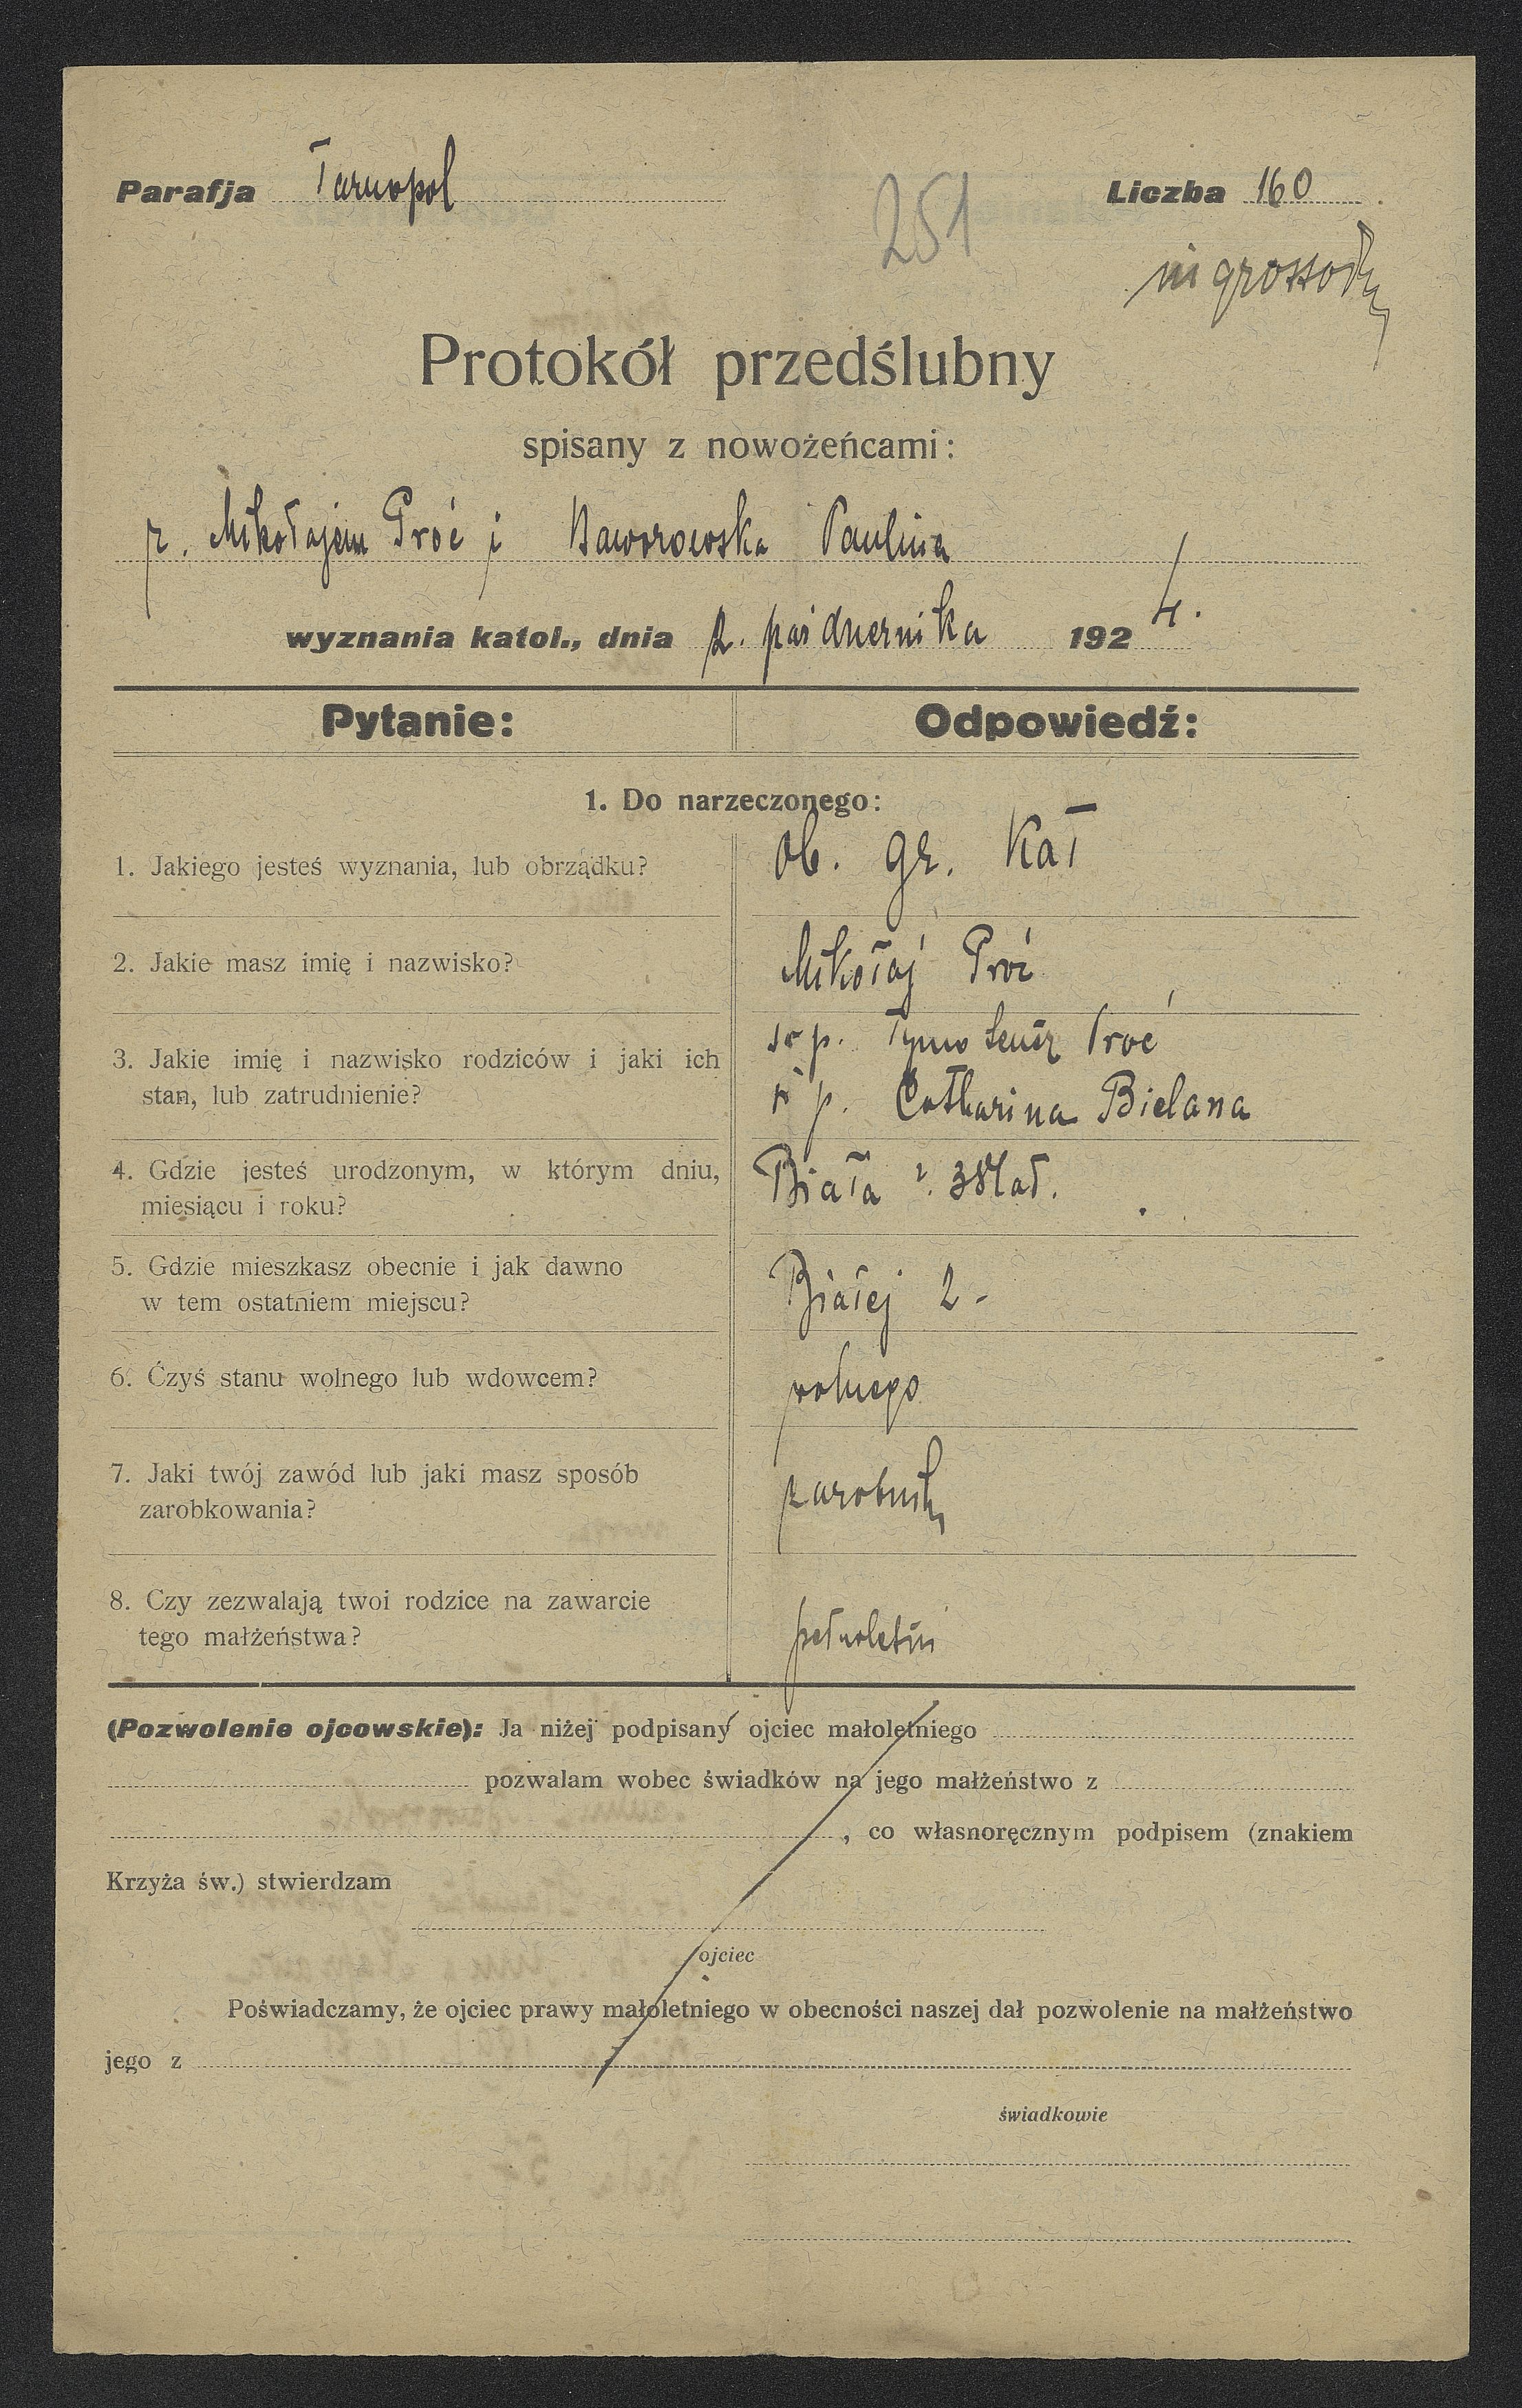 Parafja Tarnopol Liczba 160
251
Protokół przedślubny
spisany z nowożeńcami:
z. Mikołajem Proć i Baworowska Paulina
wyznania katol., dnia 2. października 1924.
Pytanie: Odpowiedź:
1. Do narzeczonego:
1. Jakiego jesteś wyznania, lub obrządku? ob. gr. Kat
2. Jakie masz imię i nazwisko? Mikołaj Proć
3. Jakie imię i nazwisko rodziców i jaki ich
stan, lub zatrudnienie?
Proć
Catharina Bielana
4. Gdzie jesteś urodzonym, w którym dniu,
miesiącu i roku?
Biała
5. Gdzie mieszkasz obecnie i jak dawno
w tem ostatniem miejscu?
Białej 2-
6. Czyś stanu wolnego lub wdowcem? wolnego
7. Jaki twój zawód lub jaki masz sposób
zarobkowania?
zarobnik
8. Czy zezwalają twoi rodzice na zawarcie
tego małżeństwa?
pełnoletni
(Pozwolenie ojcowskie): Ja niżej podpisany ojciec małoletniego
pozwalam wobec świadków na jego małżeństwo z
, co własnoręcznym podpisem (znakiem
Krzyża św.) stwierdzam
ojciec
Poświadczamy, że ojciec prawy małoletniego w obecności naszej dał pozwolenie na małżeństwo
jego z
świadkowie